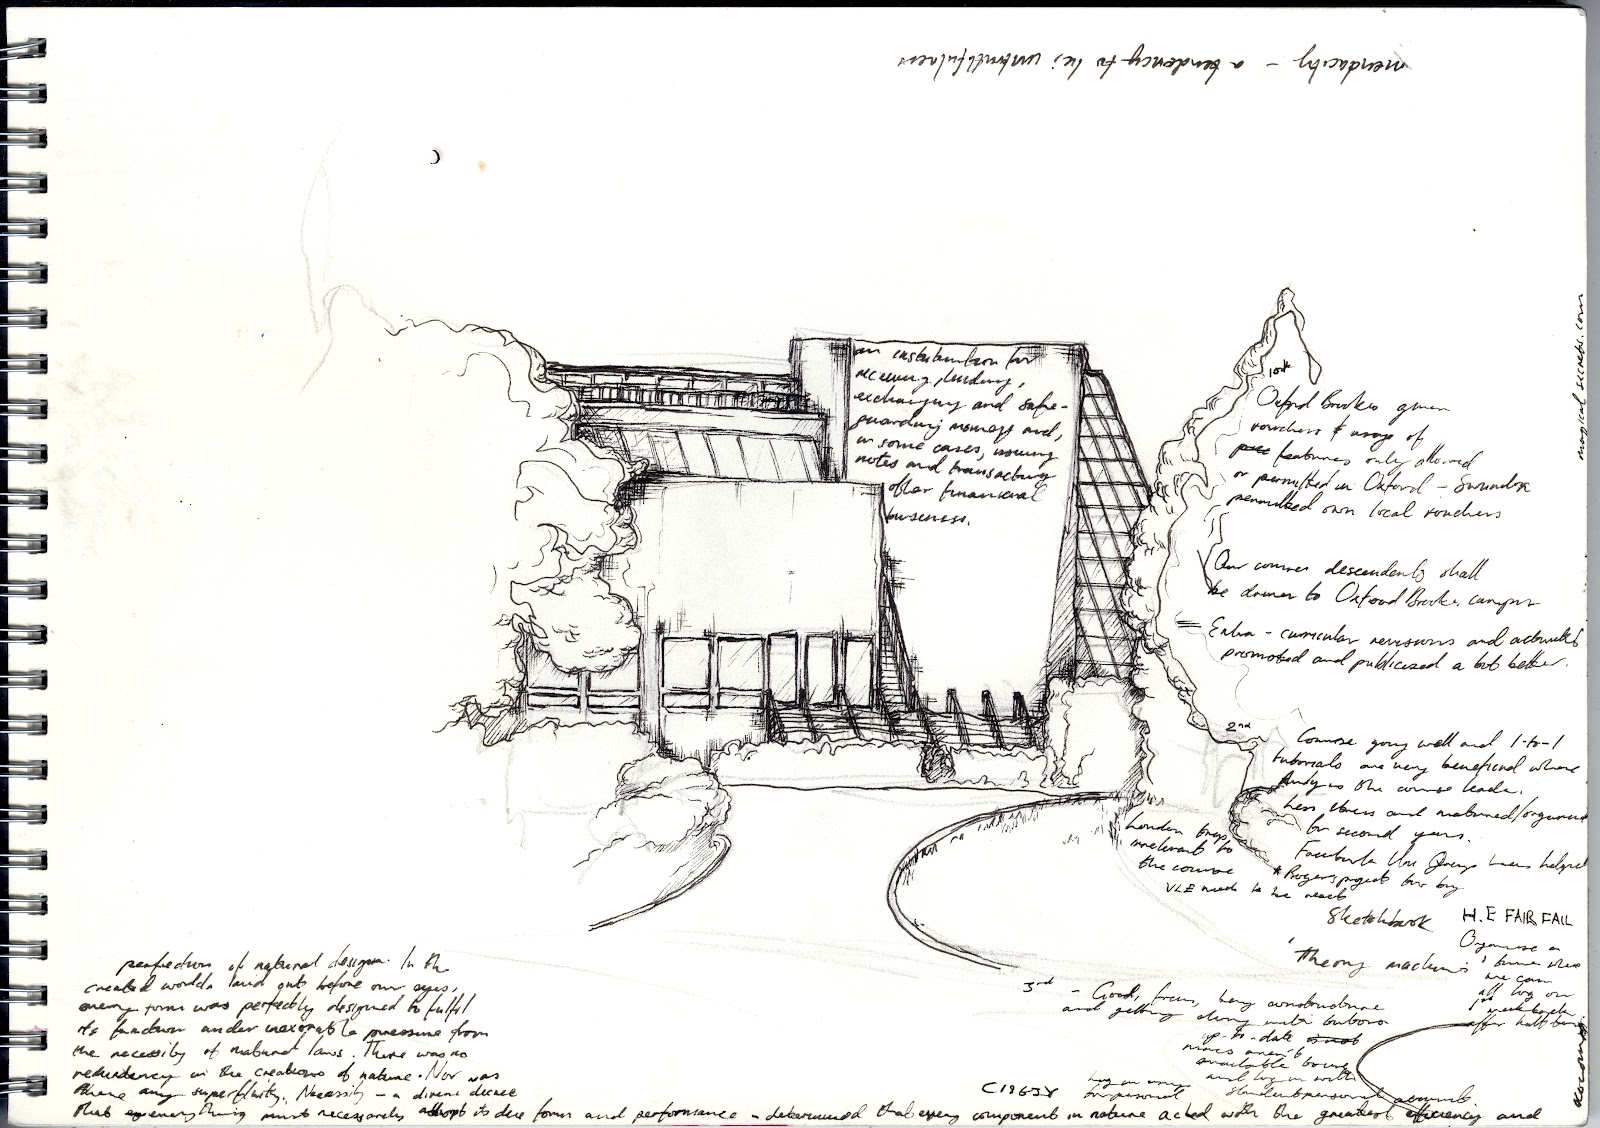 mendacity - a tendency to lie; untruthfulness
an institution for
receiving, lending,
exchanging and safe-
guarding money and,
in some cases, issuing
notes and transacting
other financial
business.
magicalsecrets.com
10th
Oxford Brookes given
vouchers & usage of
features only allowed
or permitted in Oxford - Swindon
permitted own local vouchers
Our course descendents shall
be driven to Oxford Brookes campus
Extra-curricular revisions and activities
promoted and publicised a bit better.
2nd
Course going well and 1-to-1
tutorials are very beneficial where
Andy is the course leader.
Less stress and matured/organised
for second years.
Facebook has helped
London trips
irrelevant to
the course
VLE needs to be
* Rogers project for big
Sketchbook
H.E FAIR FAIL
'theory machine'
Organise a
time when
we can
all log on
after half term
3rd - Good, focus, being constructive
and getting along with tutors
up-to-date
aren't
available
and log in with
student personal accounts.
C1963Y
perfection of natural design. In the
created world laid out before our eyes,
every form was perfectly designed to fulfil
its function under inexorable pressure from
the necessity of natural laws. There was no
redundancy in the creations of nature. Nor was
there any superfluity. Necessity - a divine decree
that everything must necessarily adopt its due form and performance - determined that every component in nature acted with the greatest efficiency and